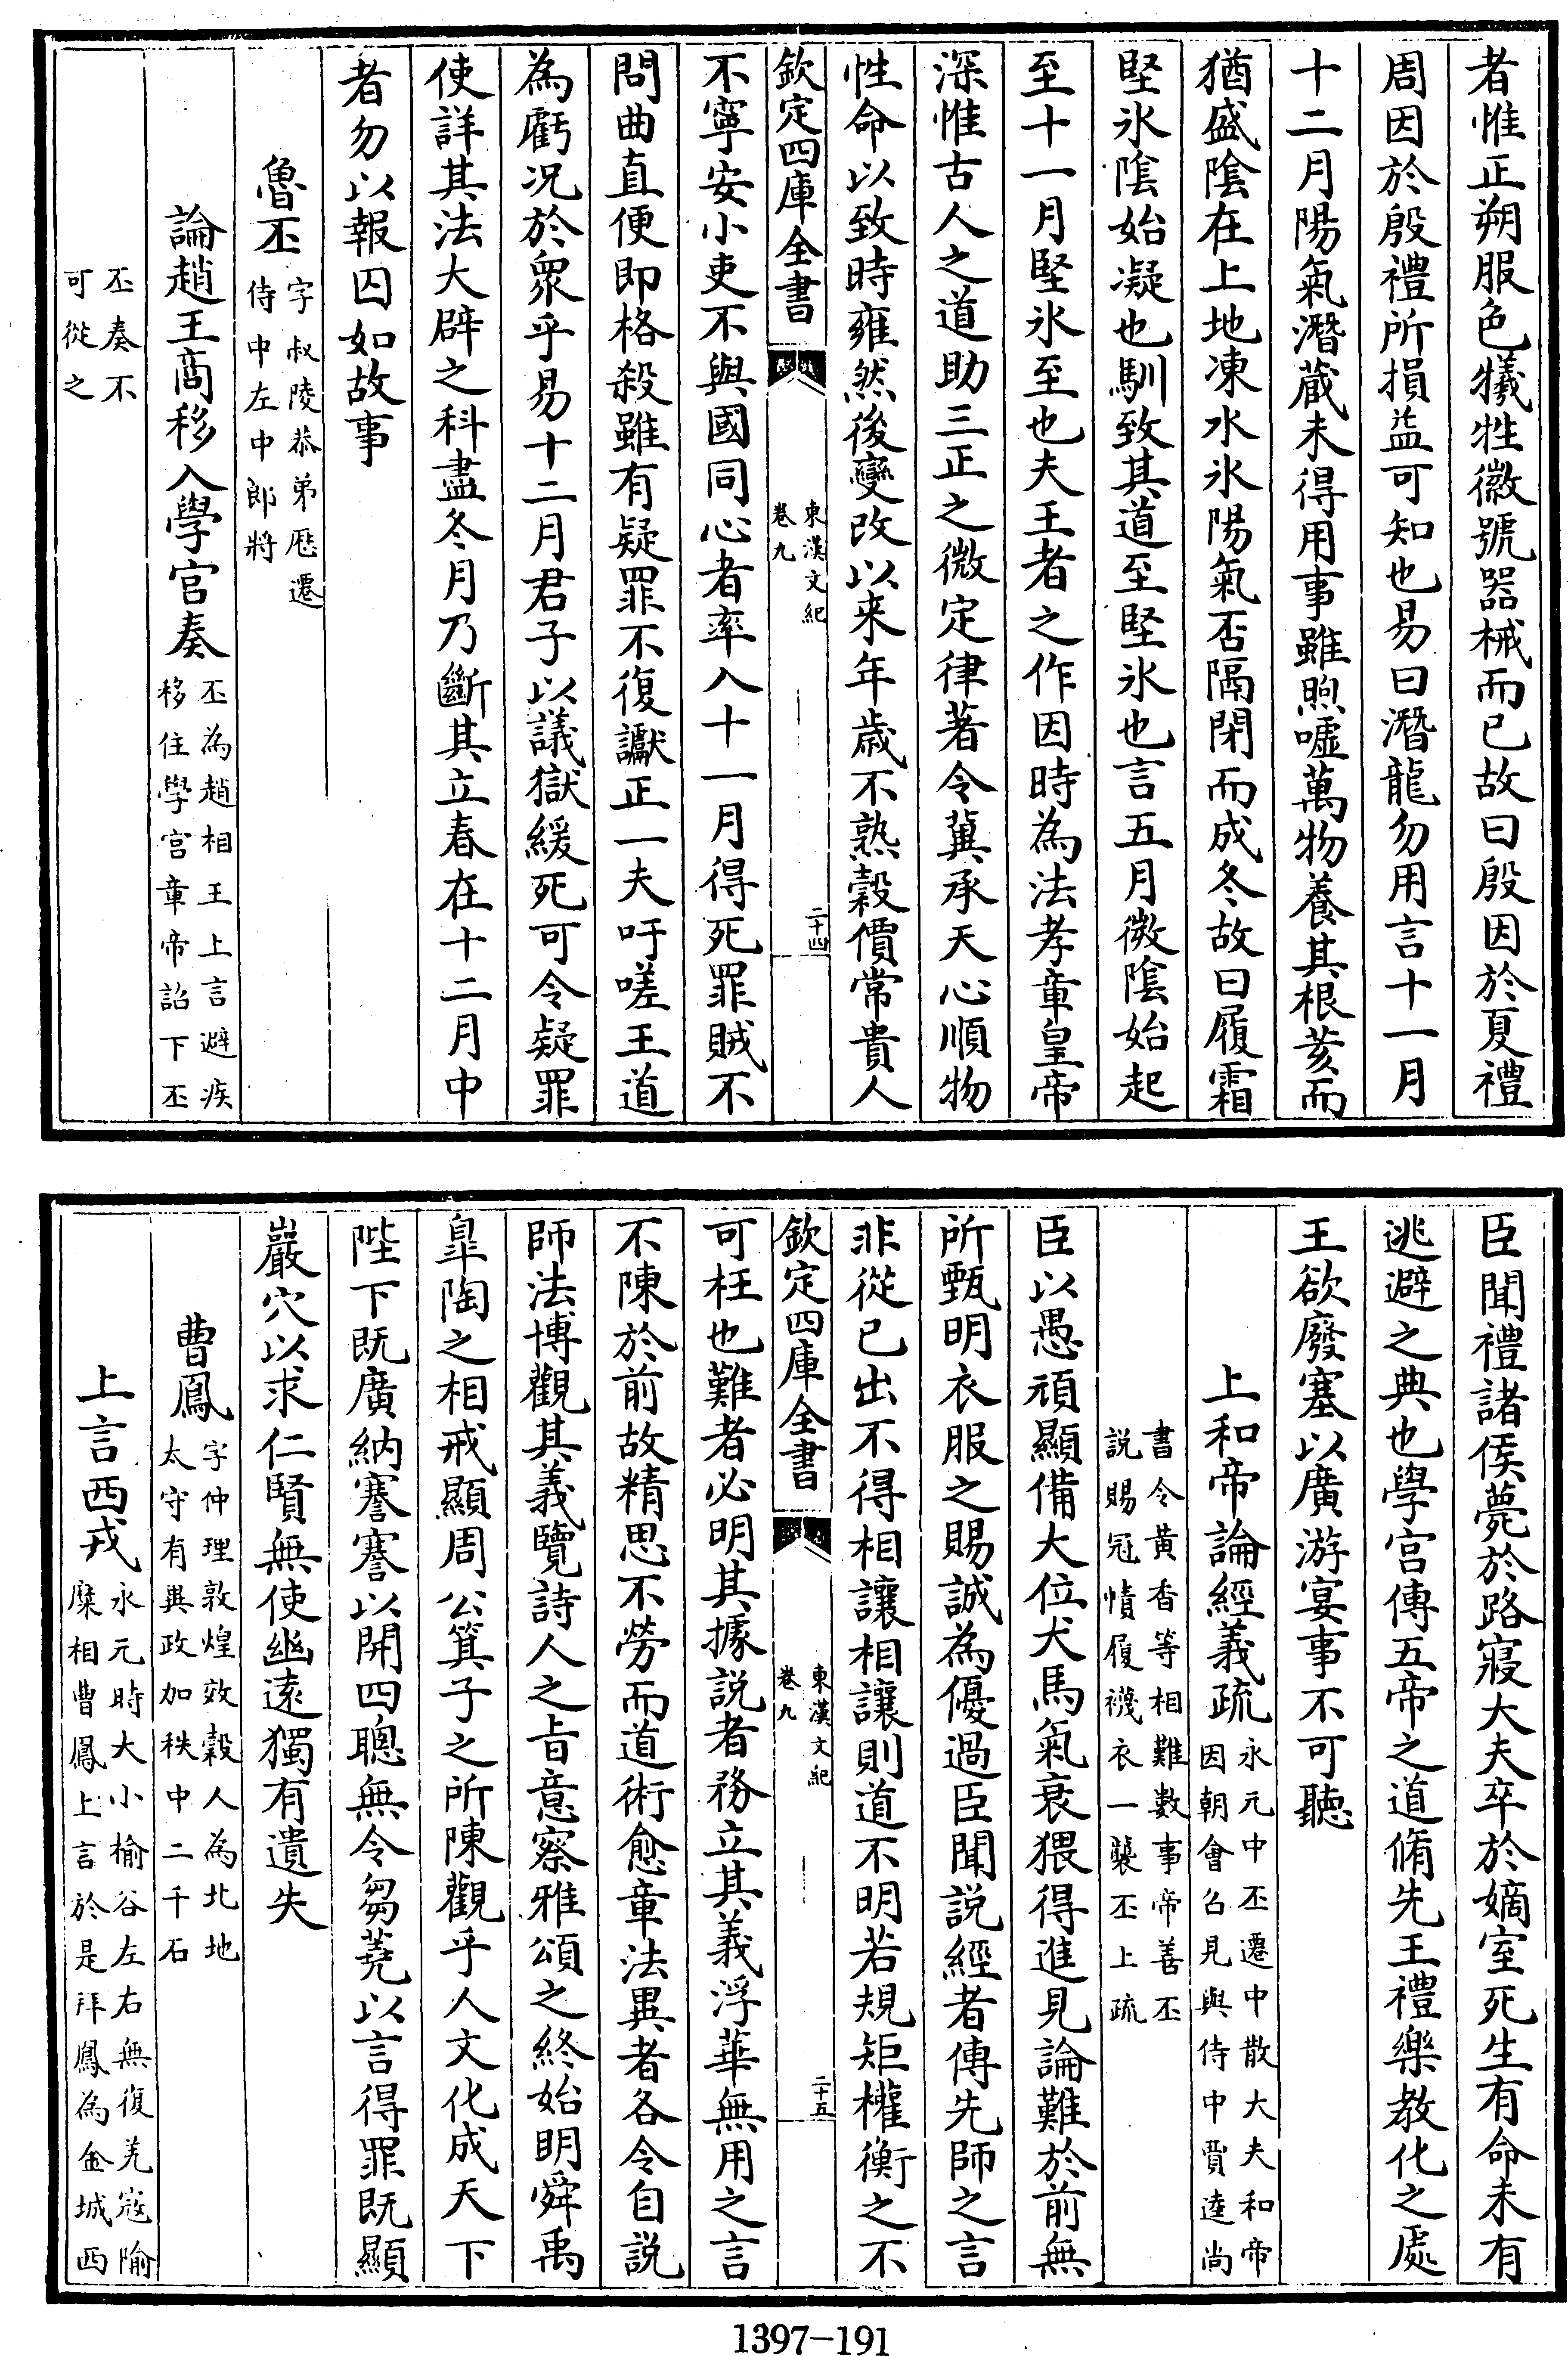 者惟正朔服色犧牲徽號器械而已故曰殷因於夏禮
周因於殷禮所損益可知也易曰潛龍勿用言十一月
十二月陽氣潛藏未得用事雖煦噓萬物養其根荄而
猶盛陰在上地凍水氷陽氣否隔閉而成冬故曰履霜
堅氷陰始凝也馴致其道至堅氷也言五月微陰始起
至十一月堅氷至也夫王者之作因時為法孝章皇帝
深惟古人之道助三正之微定律著令冀承天心順物
性命以致時雍然後變改以来年歲不熟穀價常貴人
欽定四庫全書
東漢文紀
卷九
二十四
不寧安小吏不與國同心者率入十一月得死罪賊不
問曲直便即格殺雖有疑罪不復讞正一夫吁嗟王道
為虧况於衆乎易十二月君子以議獄緩死可令疑罪
使詳其法大辟之科盡冬月乃斷其立春在十二月中
者勿以報囚如故事
魯丕字叔陵恭弟歴遷
侍中左中郎將
論趙王商移入學官奏丕為趙相王上言避疾
移住學宫章帝詔下丕
丕奏不
可從之
臣聞禮諸侯薨於路寢大夫卒於嫡室死生有命未有
逃避之典也學宫傳五帝之道脩先王禮樂教化之處
王欲廢塞以廣游宴事不可聽
上和帝論經義疏永元中丕遷中散大夫和帝
因朝會召見與侍中賈逵尚
書令黄香等相難數事帝善丕
説賜冠幘履襪衣一襲丕上疏
臣以愚頑顯備大位犬馬氣衰猥得進見論難於前無
所甄明衣服之賜誠為優過臣聞說經者傳先師之言
非從已出不得相讓相讓則道不明若規矩權衡之不
欽定四庫全書
東漢文紀
卷九
二十五
可枉也難者必明其據説者務立其義浮華無用之言
不陳於前故精思不勞而道術愈章法異者各令自説
師法博觀其義覽詩人之旨意察雅頌之終始明舜禹
臯陶之相戒顯周公箕子之所陳觀乎人文化成天下
陛下既廣納謇謇以開四聰無令芻蕘以言得罪既顯
巖穴以求仁賢無使幽遠獨有遺失
曹鳳字仲理敦煌效穀人為北地
太守有異政加秩中二千石
上言西戎永元時大小榆谷左右無復羌寇隃
糜相曹鳳上言於是拜鳳為金城西
1397-191